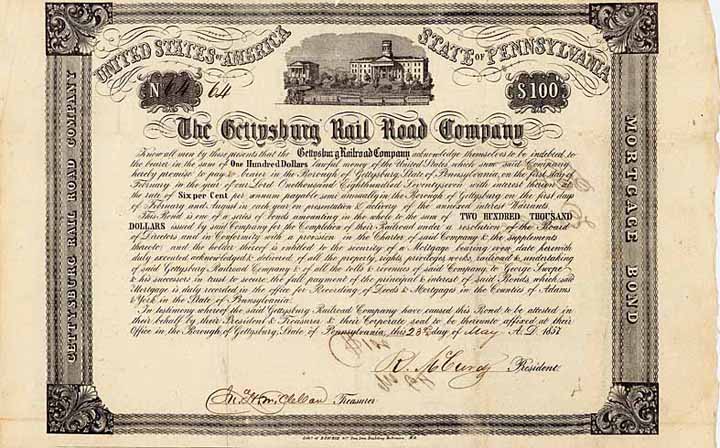 UNITED STATES OF AMERICA STATE OF PENNSYLVANIA
N 64 64 $100
The Gettysburg Rail Road Company
Know all men by these presents that the Gettysburg Railroad Company acknowledge themselves to be indebted to
the bearer in the sum of One Hundred Dollars lawful money of the United States which sum said Company
hereby promise to pay to bearer in the Borough of Gettysburg, State of Pennsylvania, on the first day of
February in the year of our Lord One thousand Eight hundred Seventy seven with interest thereon
the rate of Six per Cent per annum payable semi annually in the Borough of Gettysburg on the first days
of February and August in each year on presentation & delivery of the annexed interest Warrants
This Bond is one of a series of bonds amounting in the whole to the sum of TWO HUNDRED THOUSAND
DOLLARS issued by said Company for the Completion of their Railroad under a resolution of the Board
of Directors and in Conformity with a provision in the Charter of said Company & the supplements
thereto and the holder thereof is entitled to the security of a Mortgage bearing even date herewith
duly executed acknowledged & delivered, of all the property, rights, privileges, works, railroad & undertaking
of said Gettysburg Railroad Company & of all the tolls & revenues of said Company, to George Swope
& his successors in trust to secure the full payment of the principal & interest of said Bonds, which said
Mortgage is duly recorded in the office for Recording of Deeds & Mortgages in the Counties of Adams
& York in the State of Pennsylvania.
In testimony whereof the said Gettysburg Railroad Company have caused this Bond to be attested in
their behalf by their President & Treasurer & their Corporate seal to be thereunto affixed at their
Office in the Borough of Gettysburg, State of Pennsylvania, this 23rd day of May A.D. 1857
R. McCurdy President
Treasurer
GETTYSBURG RAIL ROAD COMPANY
MORTGAGE BOND